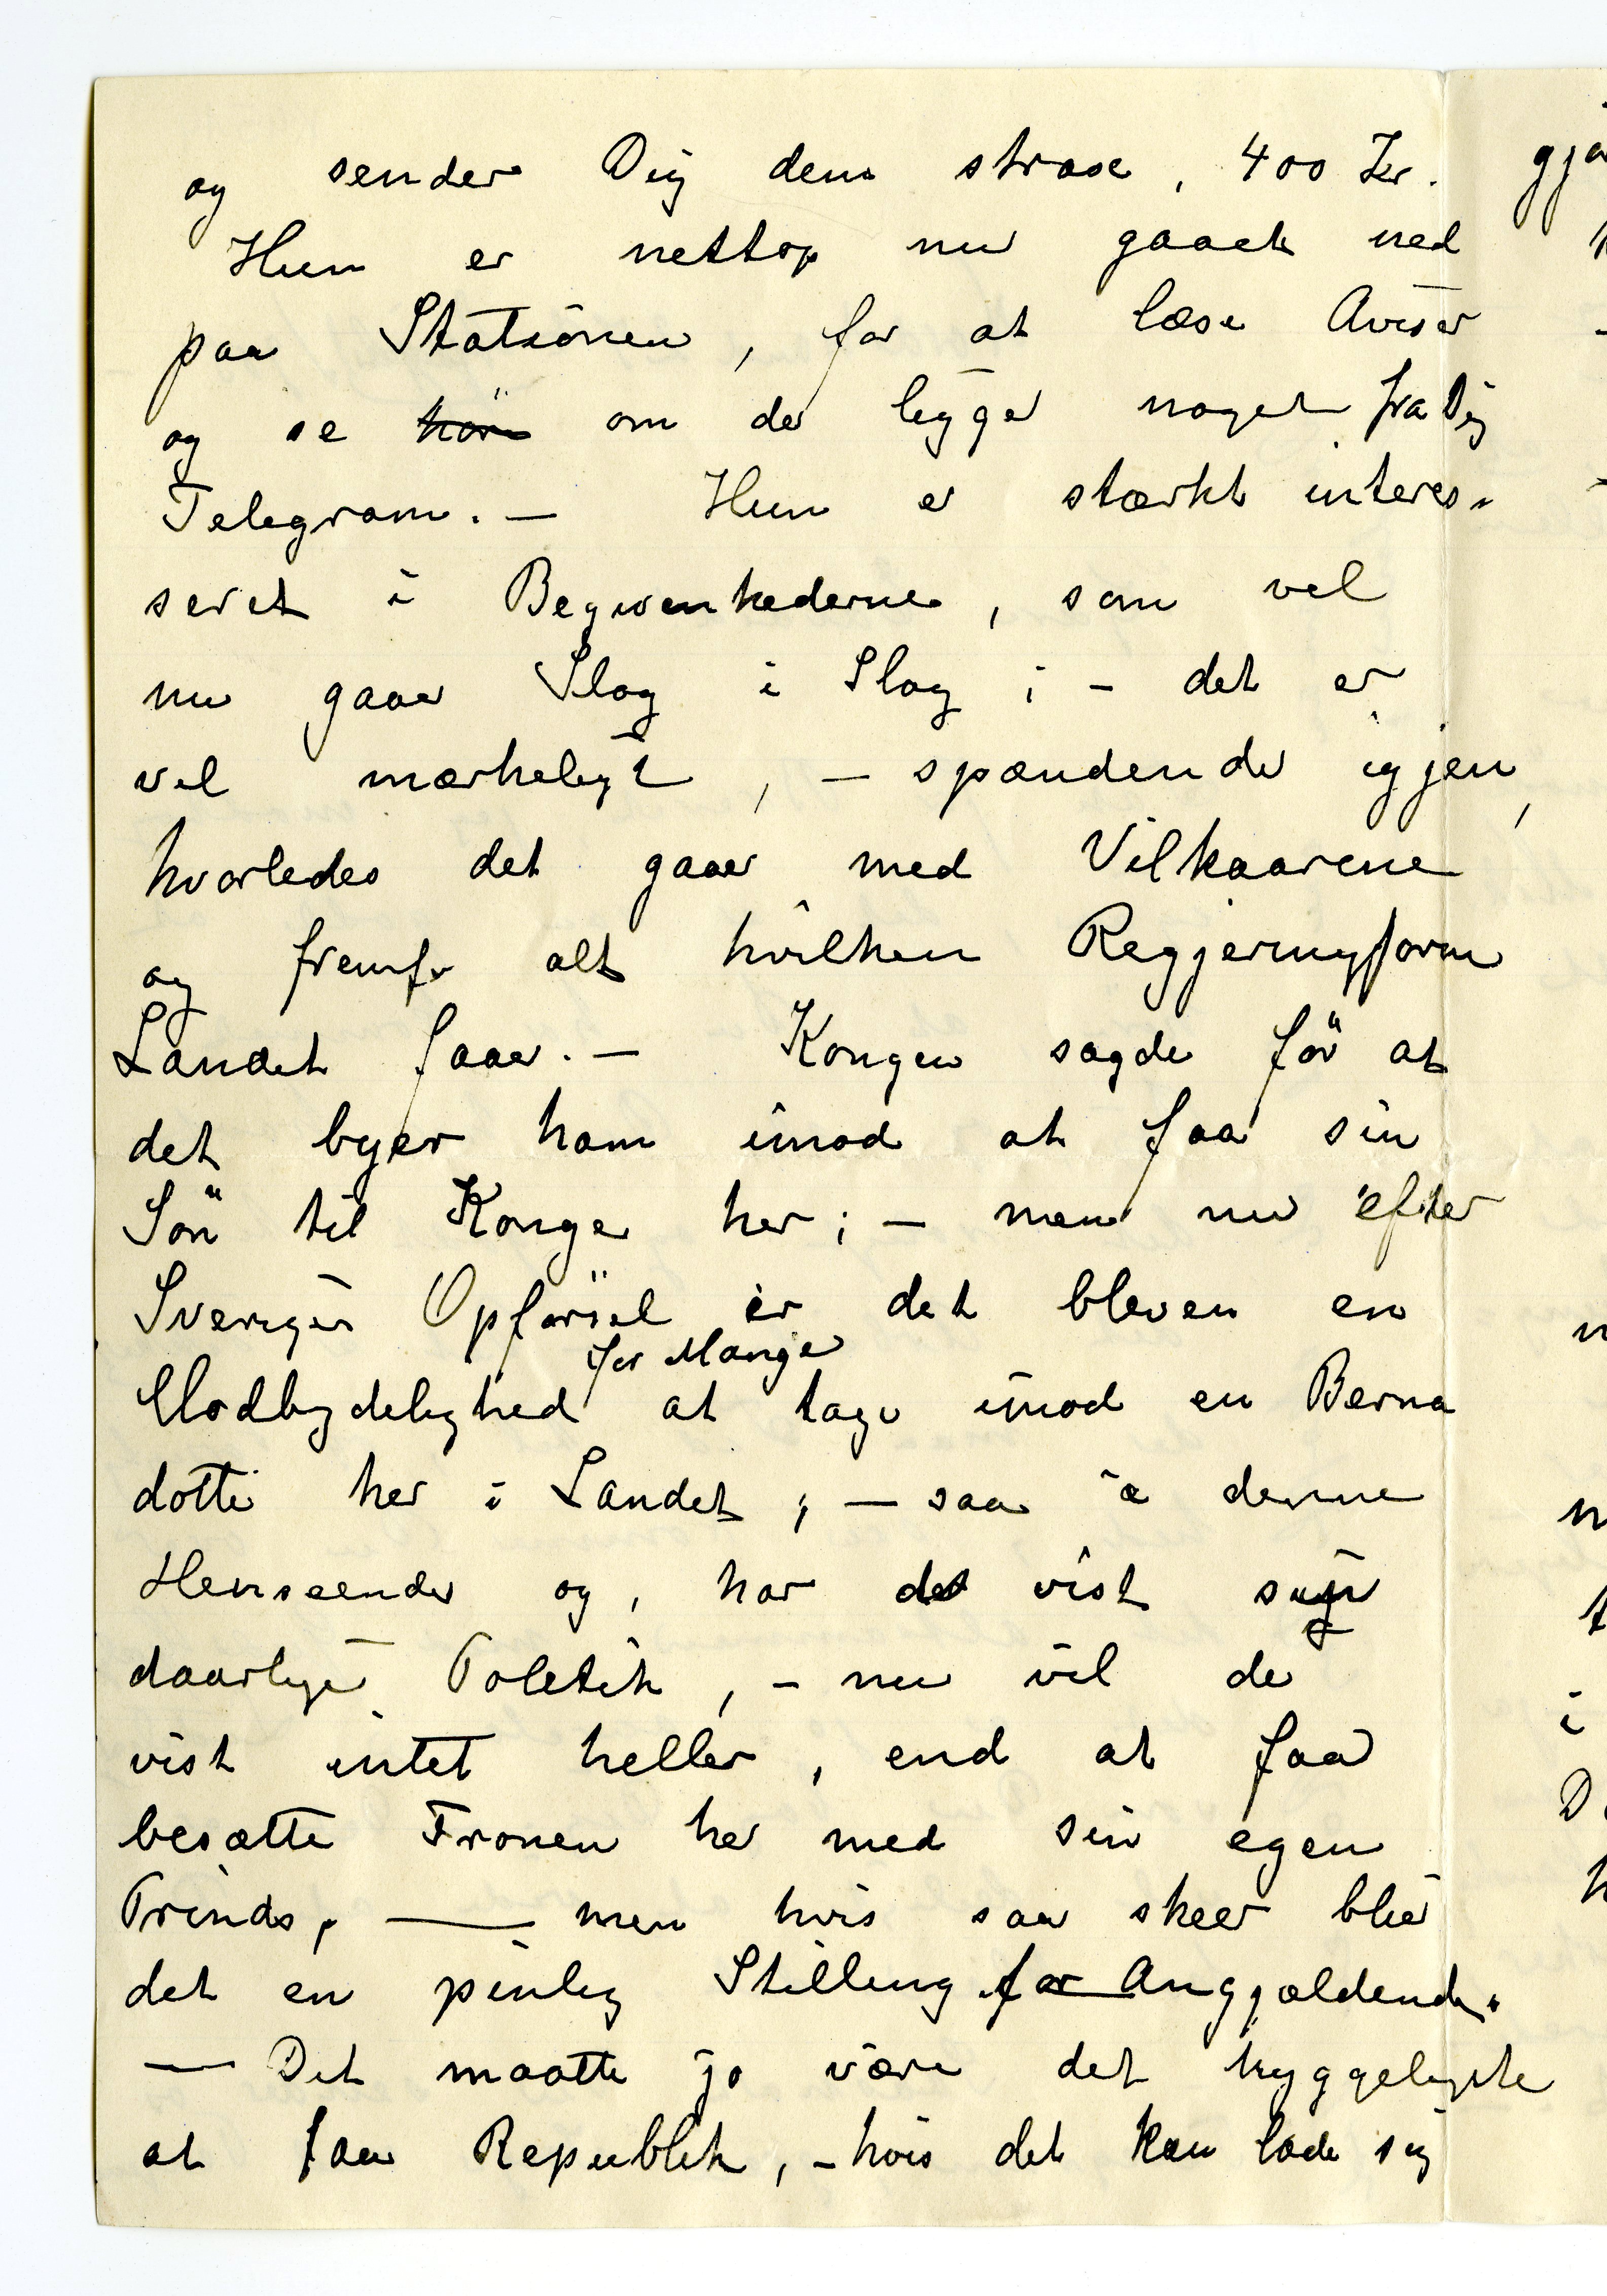 og sender Dig dem strax, 400 Kr.
Hun er nettop nu gaaet ned
paa Stationen, for at læse Aviser
og se hör om der ligger noget fra Dig
Telegram. — Hun er stærkt interes-
seret i Begivenhederne, som vel
nu gaaer Slag i Slag; - det er
vel mærkeligt, — spændende igjen,
hvorledes det gaaer med Vilkaarene
og fremfor alt hvilken Regjeringsform
Landet faaer. — Kongen sagde för at
det byer ham imod at faa sin
Sön til Konge her; — men nu efter
Sveriges Opförsel er det bleven en
for Mange
Modbydelighed at tage imod en Berna
dotte her i Landet; — saa i denne
Henseende og, har det vist sig
daarlig Politik, - nu vil de
vist intet heller, end at faa
besætte Tronen her med sin egen
Prinds, — men hvis saa skeer blir
det en pinlig Stilling for Angjældende.
— Det maatte jo være det hyggeligste
at faa Republik, - hvis det kan lade sig
gja
n
n
t
i
D
h